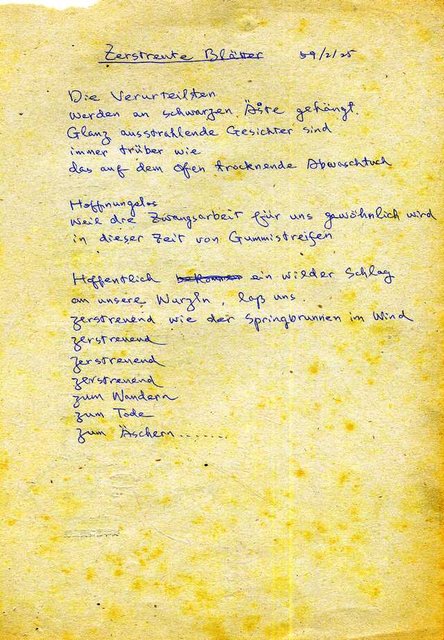 Zerstreute Blätter 59/2/25
Die Verurteilten
werden an schwarzen Äste gehängt.
Glanz ausstrahlende Gesichter sind
immer trüber wie
das auf dem Ofen trocknende Abwaschtuch
Hoffnungslos
weil die Zwangsarbeit für uns gewöhnlich wird
in dieser Zeit von Gummistreifen
Hoffentlich ein wilder Schlag
an unsere Wurzln, laß uns.
zerstreuend wie der Springbrunnen im Wind
zerstreuend
zerstreuend
zerstreuend
zum Wandern
zum Tode
zum Äschern.......